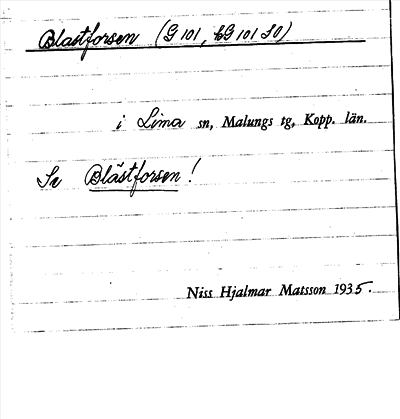 Blastforsen (G 101, bG 101 SO)
i Lima sn, Malungs tg, Kopp. län.
Se Blästforsen!
Niss Hjalmar Matsson 1935.